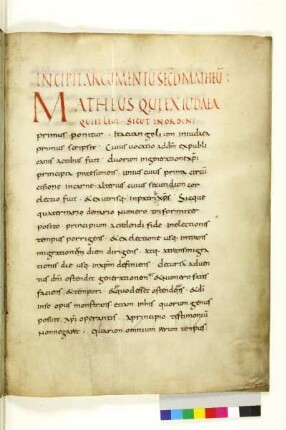 INCIPIT ARGUMENTU SECD MATHEU:
MATHEUS QUI EX IUDAEA
QUI ET LEVI SICUT IN ORDINE
primus ponitur ita evangelium in iudaea
primus scripsit Cuius vocatio ad dm ex publi
canis actibus fuit duorum in generatione xpi
principia
cisione in carne alterius cuius secundum cor
electio fuit
quaternario denario numero triformiter
posito principium a credendi fide in electionis
tempus porrigens et ex electione usq in trans
migrationem diem dirigens atq a transmigra
tionis die usq in xpm definiens
dni ostendit generationem et numero satis
faciens et tempori
in se opus monstrans etiam in his quorum genus
posuit xpi operantis a principio testimonium
non negaret quarum omnium rerum tempus